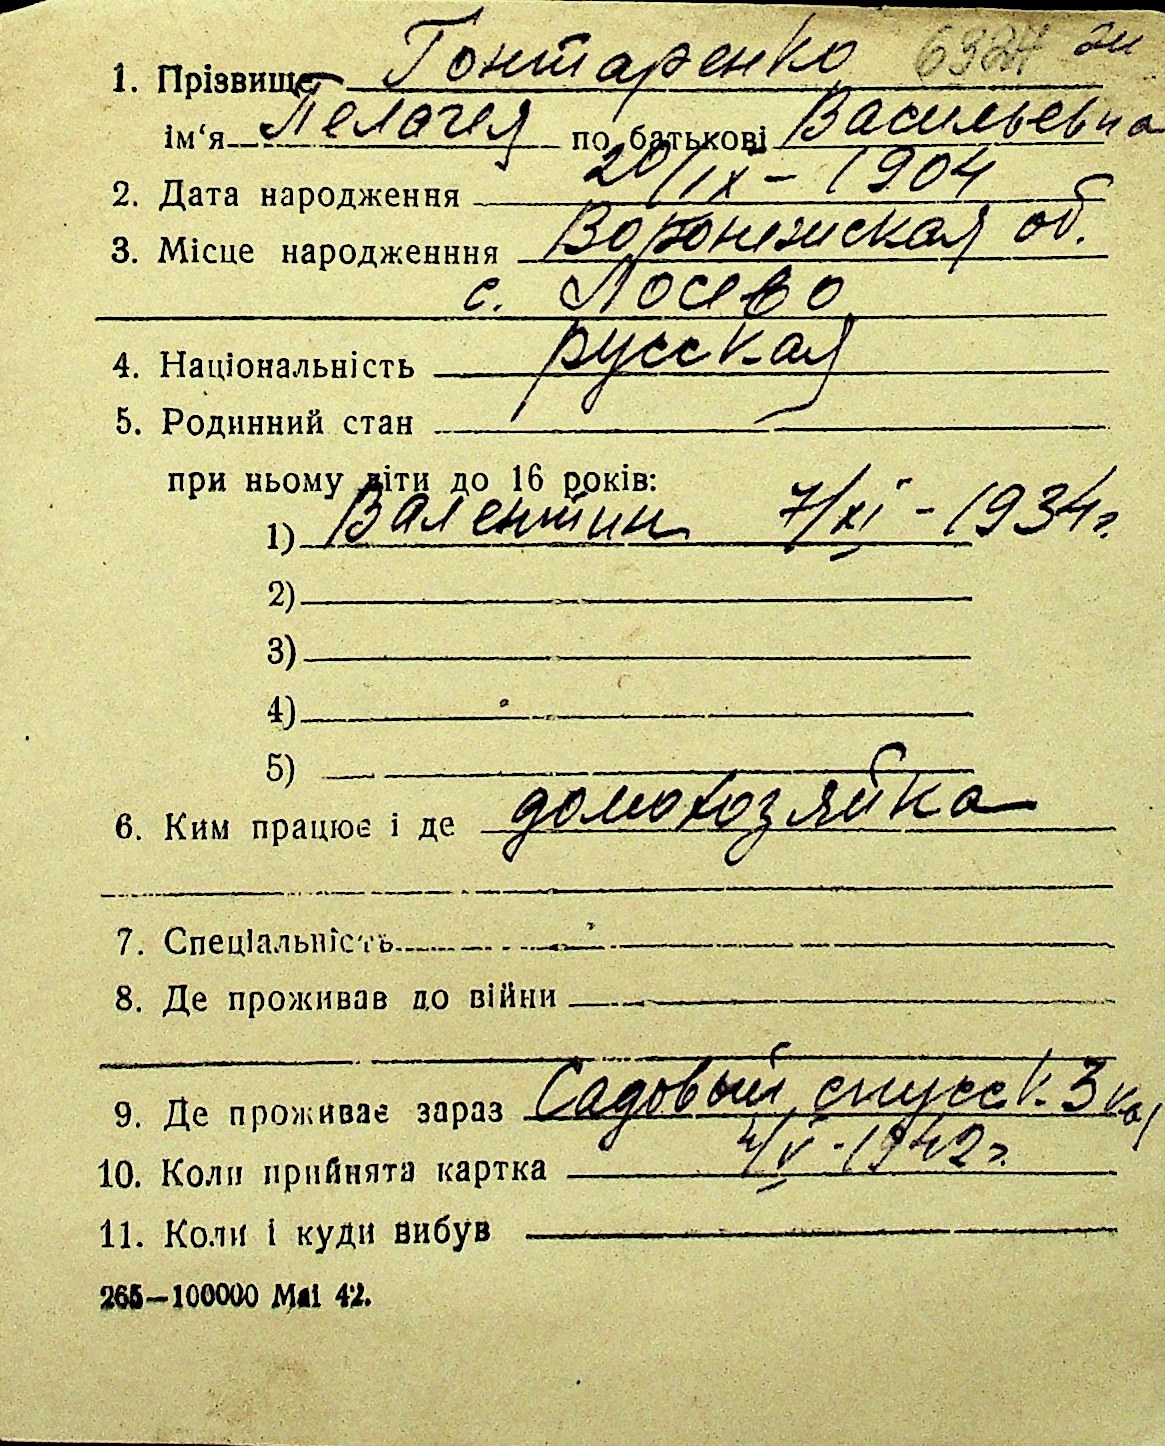 1. Прізвище Гонтаренко 6927
ім‘я Пелагея по батькові Васильевна
2. Дата народження 20/IX – 1904
3. Місце народженння Воронежская об.
с. Лосево
4. Національність русская
5. Родинний стан
при ньому діти до 16 років:
1) Валентин 7/XI - 1934 г.
2)
3)
4)
5)
6. Ким працює і де домохозяйка
7. Спеціальність
8. Де проживав до війни
9. Де проживає зараз Садовый спуск 3
10. Коли прийнята картка 4/V - 1942 г.
11. Коли і куди вибув
265—100000 Маі 42.